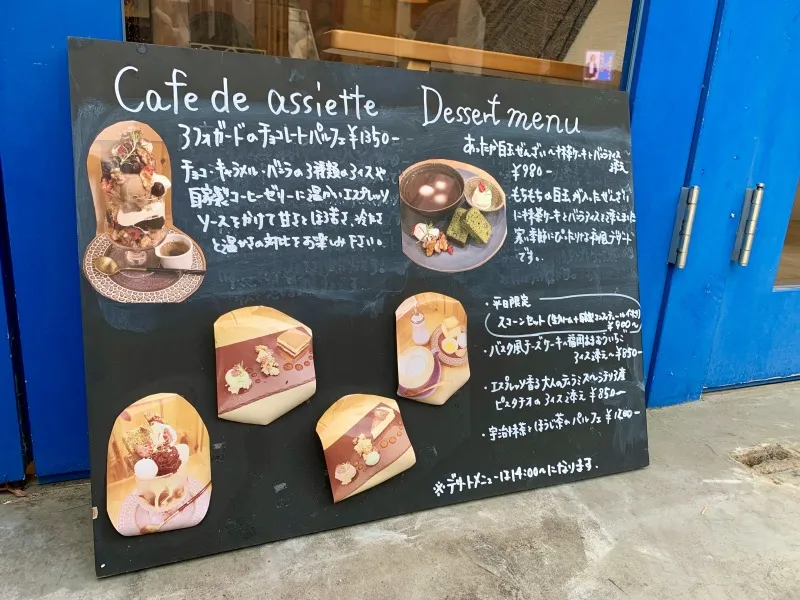 Cafe de assiette
Dessert menu
アフォガードのチョコレートパルフェ ¥1350-
チョコ・キャラメル・バニラの3種類のアイスや
自家製コーヒーゼリーに温かいエスプレッソ
ソースをかけて甘さとほろ苦さ、冷たさ
と温かさの対比をお楽しみ下さい。
あったか白玉ぜんざい〜抹茶ケーキとバニラアイス
添え
¥980-
もちもちの白玉が入ったぜんざい
に抹茶ケーキとバニラアイスを添えました
寒い季節にぴったりな和風デザート
です。
・平日限定
スコーンセット
¥900〜
・バスク風チーズケーキ〜福岡あまおういちご
アイス添え〜 ¥850-
・エスプレッソ香る大人のティラミス〜シチリア産
ピスタチオのアイス添え ¥850-
・宇治抹茶とほうじ茶のパルフェ ¥1200-
※デザートメニューは14:00〜になります.